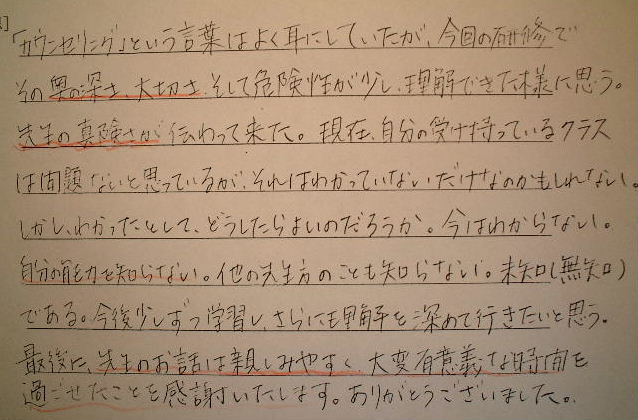 「カウンセリング」という言葉はよく耳にしていたが、今回の研修で
その奥の深さ、大切さ、そして危険性が少し、理解できた様に思う。
先生の真険さが伝わって来た。現在、自分の受け持っているクラス
は問題ないと思っているが、それはわかっていないだけなのかもしれない。
しかし、わかったとして、どうしたらよいのだろうか。今はわからない。
自分の能力を知らない。他の先生方のことも知らない。未知(無知)
である。今後少しずつ学習し、さらにも理解を深めて行きたいと思う。
最後に、先生のお話は親しみやすく、大変有意義な時間を
過ごせたことを感謝いたします。ありがとうございました。